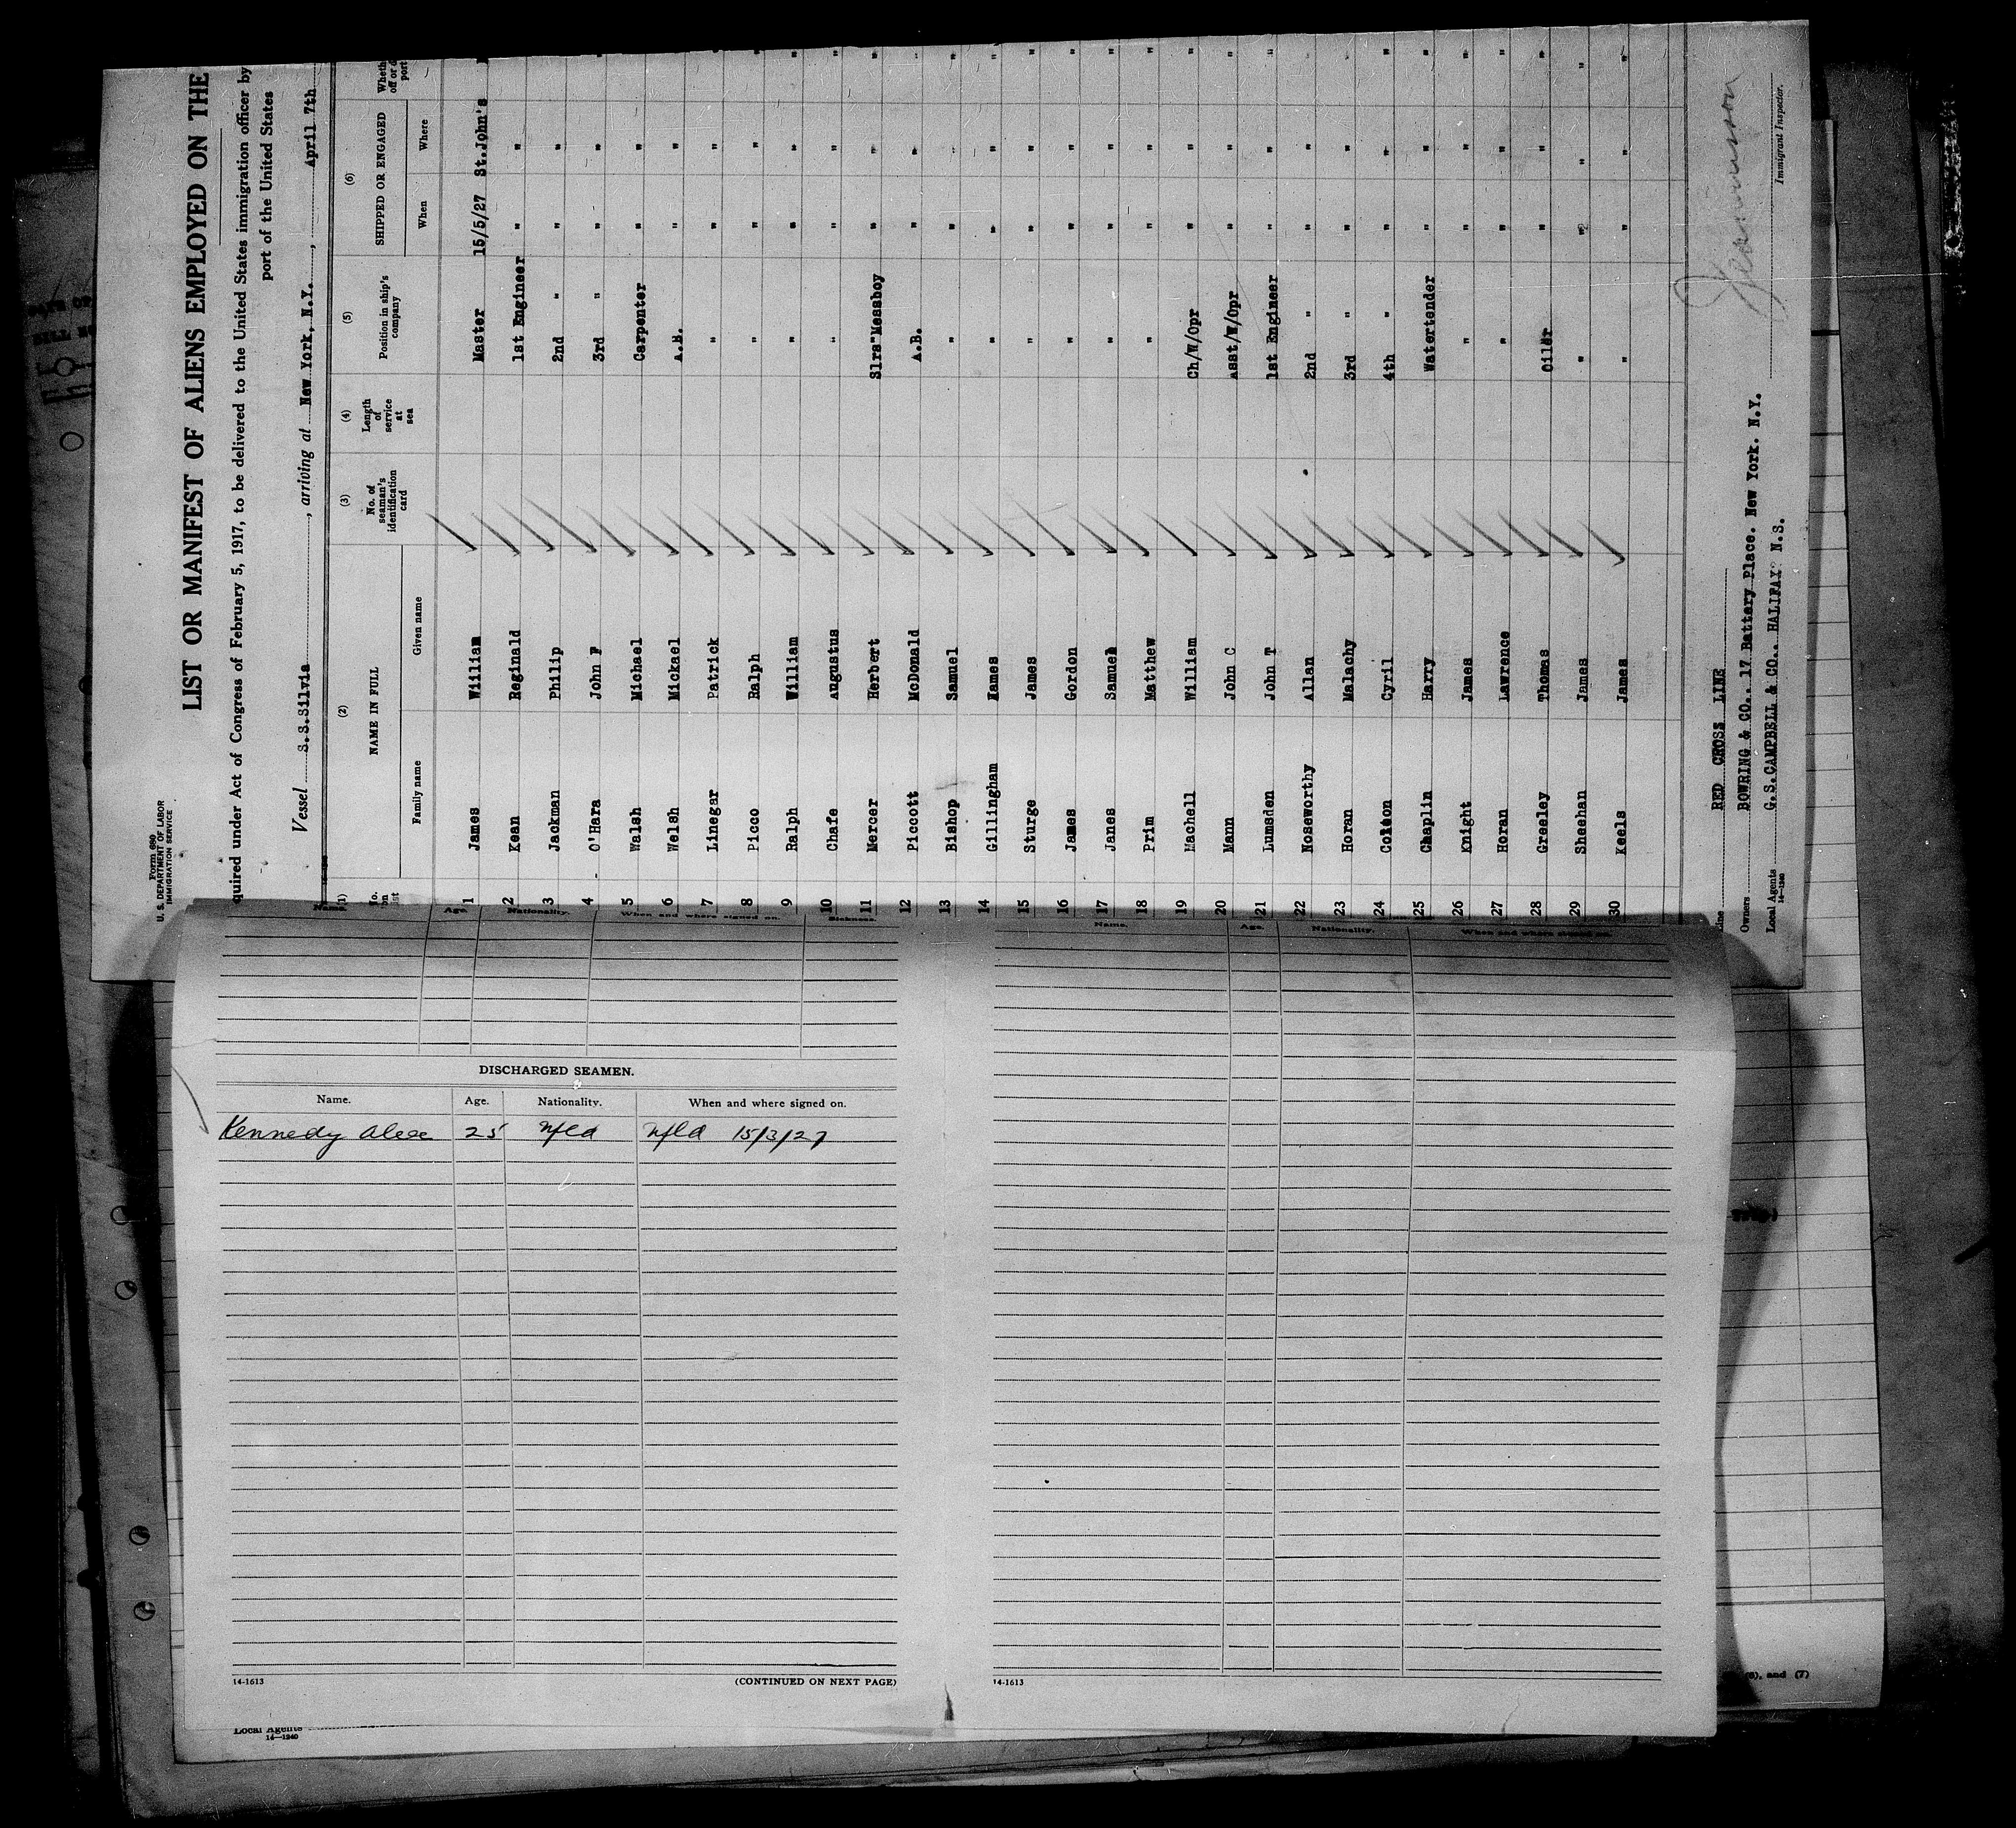 Form 680
U. S. DEPARTMENT OF LABOR
IMMIGRATION SERVICE
LIST OR MANIFEST OF ALIENS EMPLOYED ON THE
quired under Act of Congress of February 5, 1917, to be delivered to the United States immigration officer by
port of the United States
Vessel S.S.Silvia, arriving at New York, N.Y., April 7th
(1) (2) (3) (4) (5) (6)
NAME IN FULL No. of seaman's identification card Length of service at sea Position in ship's company SHIPPED OR ENGAGED
Family name Given name When Where
1 James William Master 15/5/27 St.John's
2 Kean Reginald 1st Engineer " " "
3 Jackman Philip 2nd " " " "
4 O'Hara John F 3rd " " " "
5 Walsh Michael Carpenter " " "
6 Welsh Mickael A.B. " " "
7 Linegar Patrick " " " "
8 Picco Ralph " " " "
9 Ralph William " " " "
10 Chafe Augustus " " " "
11 Mercer Herbert Slrs"Messboy " " "
12 Piccott McDonald A.B. " " "
13 Bishop Samuel " " " "
14 Gillingham James " " " "
15 Sturge James " " " "
16 James Gordon " " " "
17 Janes Samuel " " " "
18 Prim Matthew " " " "
19 Machell William Ch/W/Opr " " "
20 Mann John C Asst/W/Opr " " "
21 Lumsden John T 1st Engineer " " "
22 Noseworthy Allan 2nd " " " "
23 Horan Malachy 3rd " " " "
24 Cyril 4th " " " "
25 Chaplin Harry Watertender " " "
26 Knight James " " " "
27 Horan Lawrence " " " "
28 Greeley Thomas Oiler " " "
29 Sheehan James " " " "
30 Keels James " " " "
RED CROSS LINE
Owners BOWRING & CO., 17 Battery Place. New York. N.Y.
Local Agents G.S.CAMPBELL & CO., HALIFAX N.S.
14—1240
Immigrant Inspector.
Name. Age. Nationality. When and where signed on. Sickness.
Name. Age. Nationality. When and where signed on.
DISCHARGED SEAMEN.
Name. Age. Nationality. When and where signed on.
Kennedy Alex 25 Nfld Nfld 15/3/27
14-1613 (CONTINUED ON NEXT PAGE)
14-1613
Local Agents
14—1240
and (7)